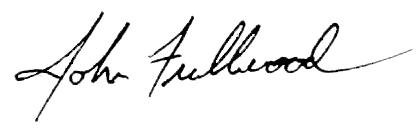 John Fullwood